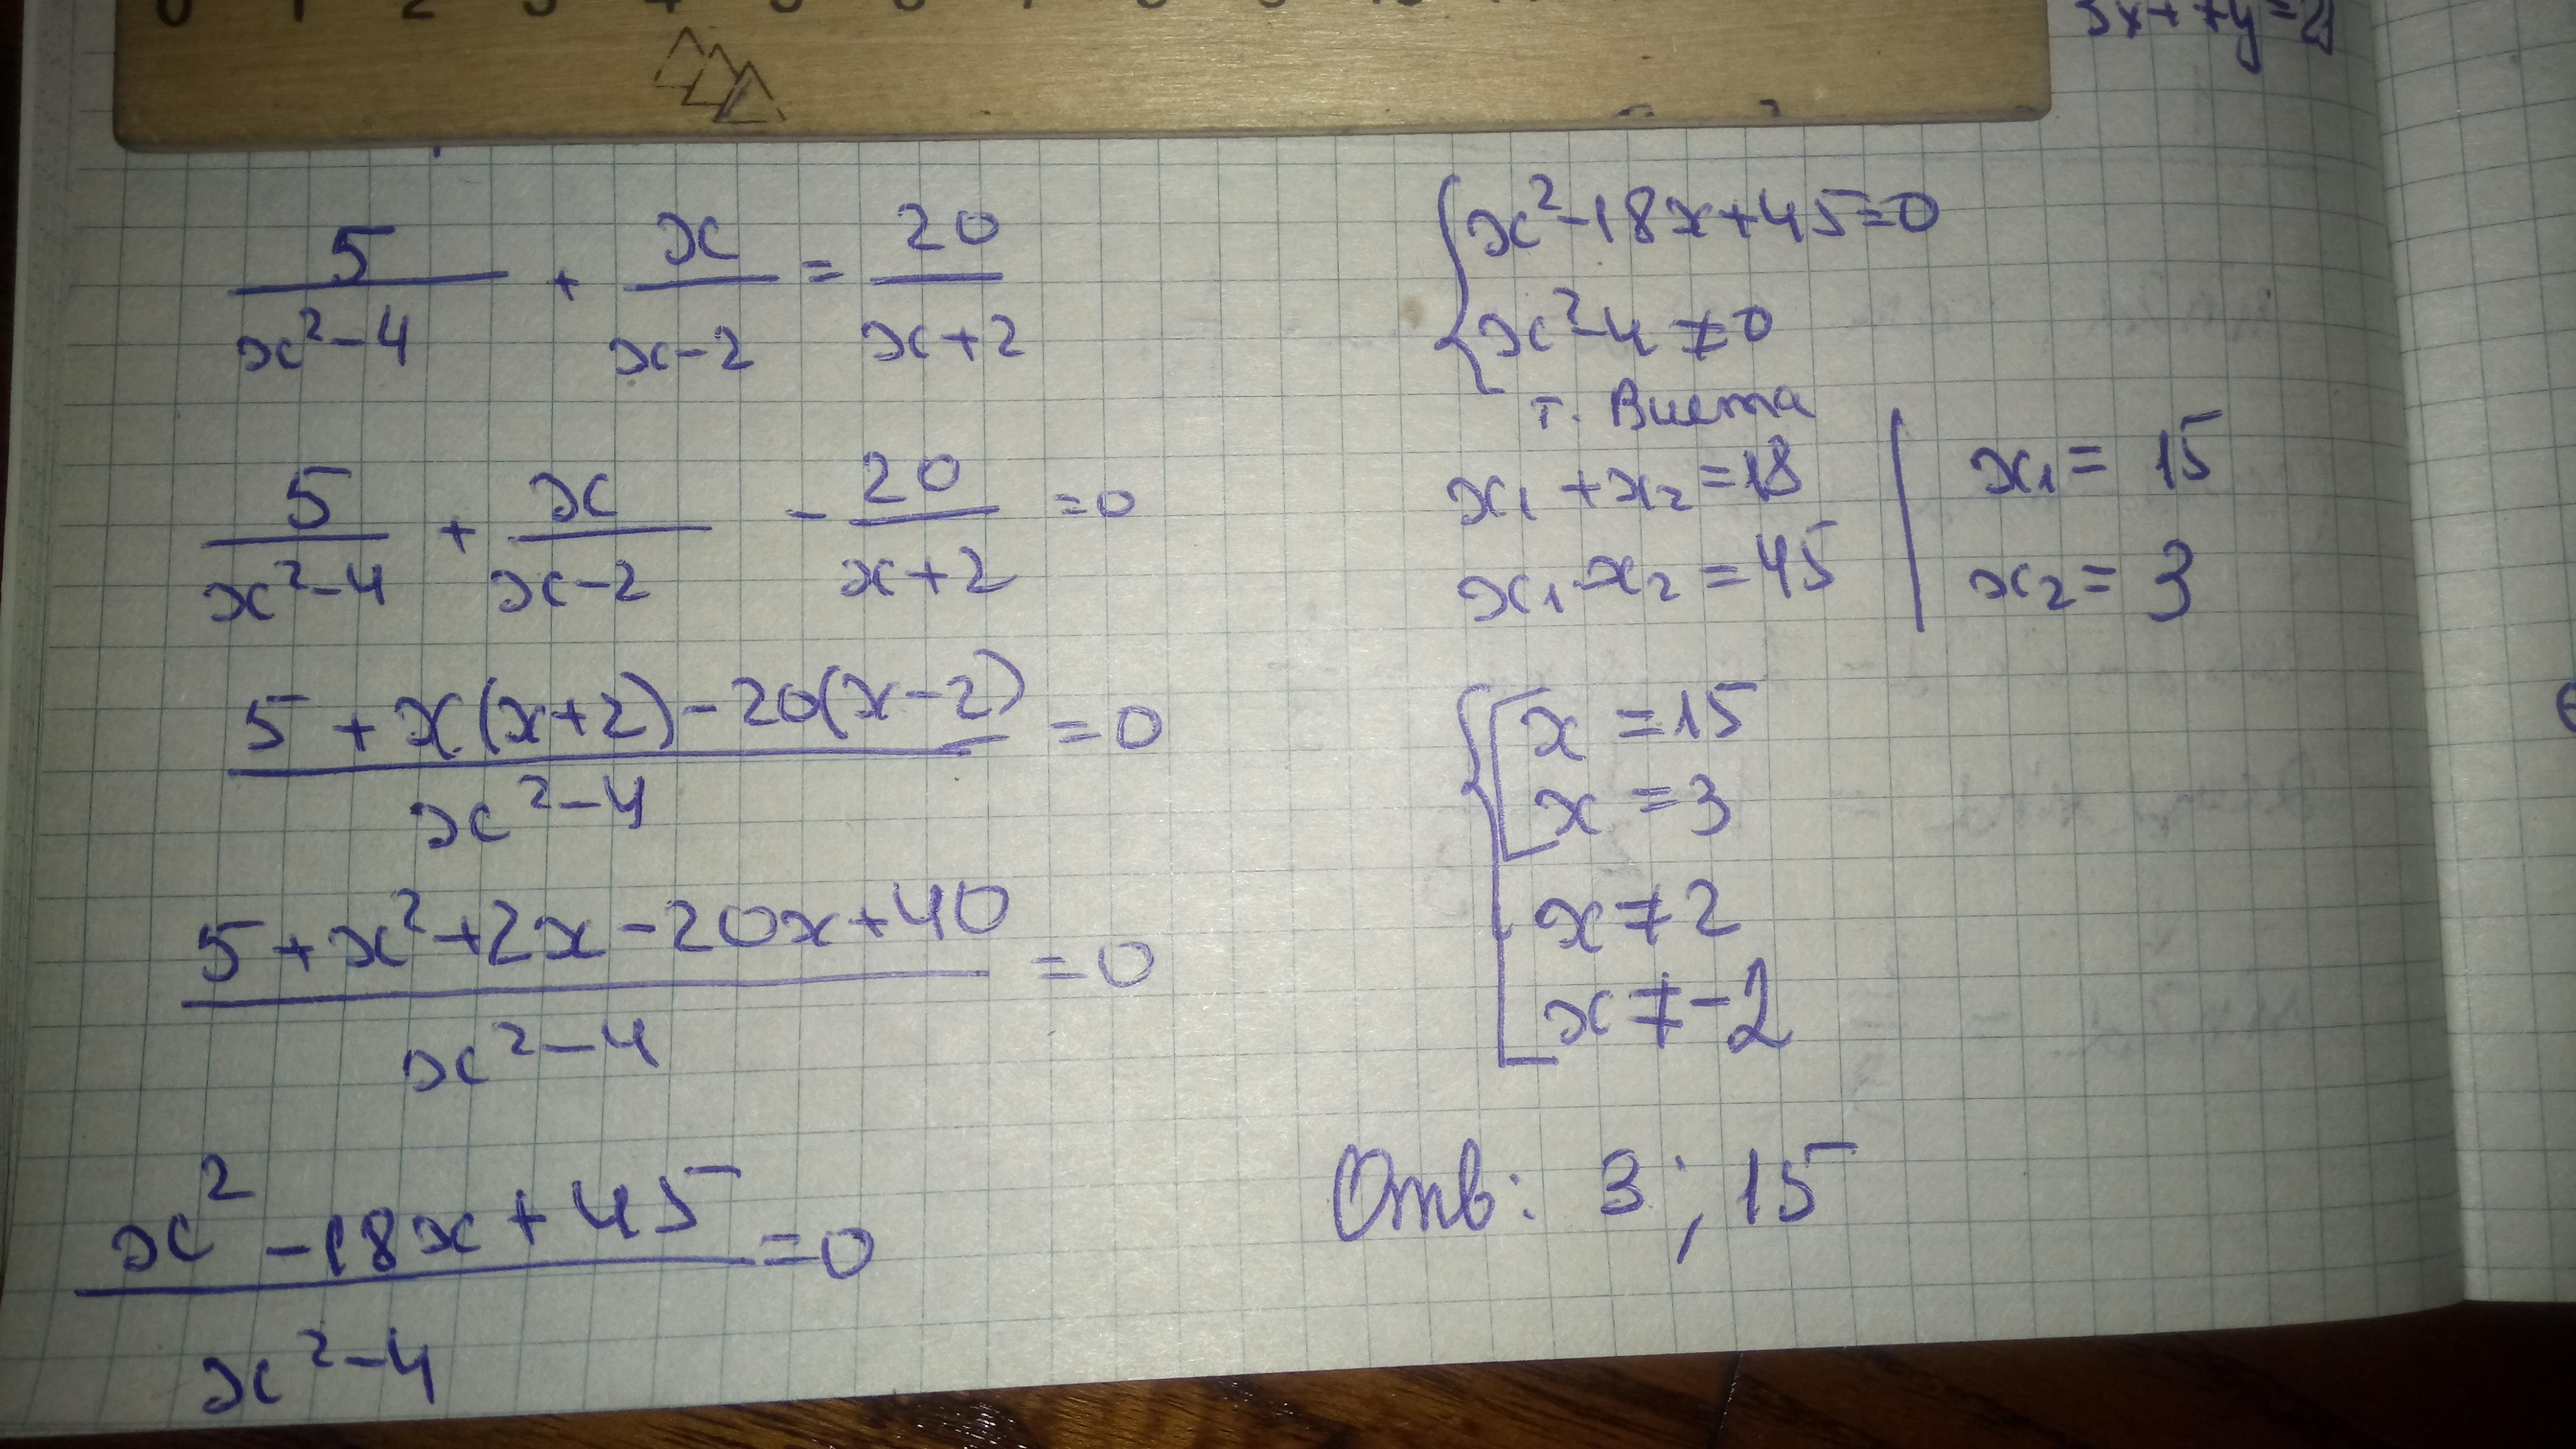 5/(x²-4) + x/(x-2) = 20/(x+2)
5/(x²-4) + x/(x-2) - 20/(x+2) = 0
(5+x(x+2)-20(x-2))/(x²-4) = 0
(5+x²+2x-20x+40)/(x²-4) = 0
(x²-18x+45)/(x²-4) = 0
{x²-18x+45=0
x²-4≠0
т. Виета
x₁+x₂=18 | x₁=15
x₁·x₂=45 | x₂=3
{[x=15
x=3
[x≠2
x≠-2
Отв: 3; 15